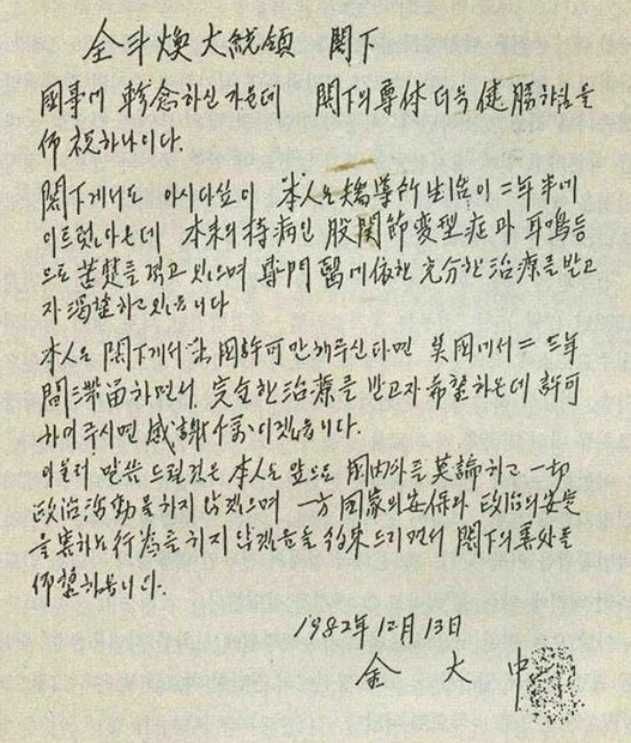 全斗煥大統領 閣下
國事에 軫念하신 가운데 閣下의 尊体 더욱 健勝하심을
仰祝하나이다.
閣下께서도 아시다싶이 本人은 矯導所 生活이 二年半에
이르렀아온데 本来의 持病인 股関節変型症과 耳鳴等
으로 苦楚를 격고 있으며 専門醫에 依한 充分한 治療를 받고
자 渴望하고 있읍니다
本人은 閣下께서 出國許可만 해주신다면 美國에서 二 三年
間 滯留하면서 完全한 治療를 받고자 希望하온데 許可
하여 주시면 感謝千萬이겠읍니다.
아울러 말씀드릴것은 本人은 앞으로 國内外를 莫論하고 一切
政治活動을 하지 않겠으며 一方 国家의 安保와 政治의 安定
을 害하는 行為를 하지 않겠음을 約束드리면서 閣下의 善処를
仰望하옵니다.
1982年 12月 13日
金 大 中